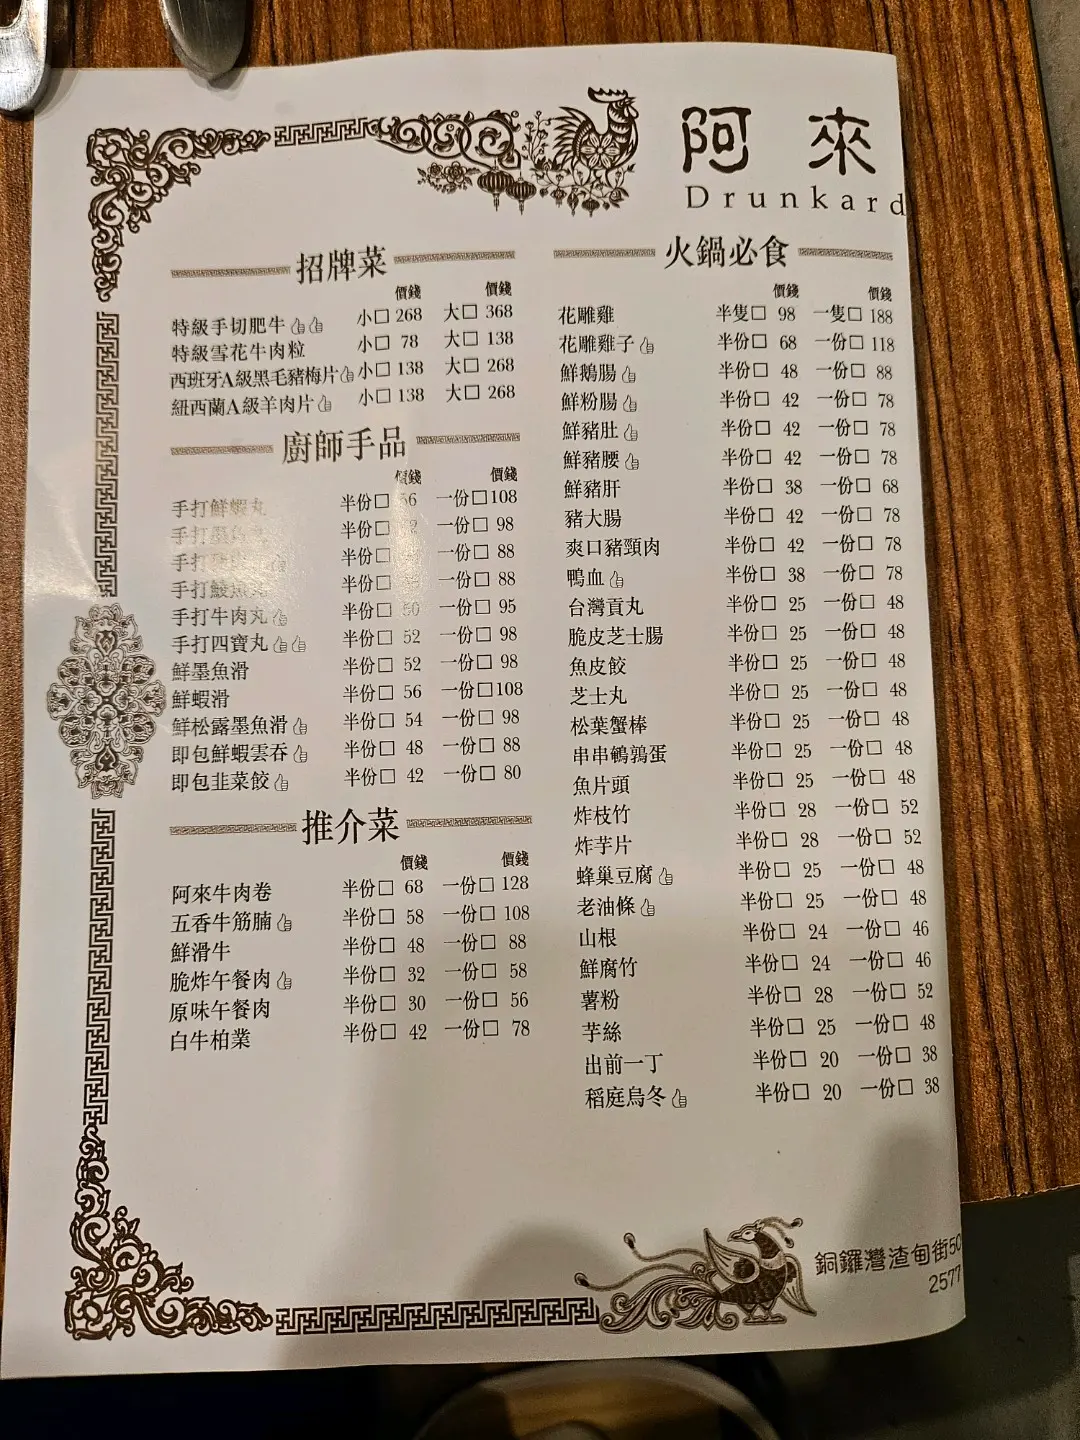 阿來
Drunkard
招牌菜
價錢 價錢
特級手切肥牛 小□ 268 大□ 368
特級雪花牛肉粒 小□ 78 大□ 138
西班牙A級黑毛豬梅片 小□ 138 大□ 268
紐西蘭A級羊肉片 小□ 138 大□ 268
廚師手品
價錢 價錢
手打鮮蝦丸 半份□ 56 一份□ 108
手打墨魚丸 半份□ 一份□ 98
手打 半份□ 一份□ 88
手打鯪魚 半份□ 一份□ 88
手打牛肉丸 半份□ 50 一份□ 95
手打四寶丸 半份□ 52 一份□ 98
鮮墨魚滑 半份□ 52 一份□ 98
鮮蝦滑 半份□ 56 一份□ 108
鮮松露墨魚滑 半份□ 54 一份□ 98
即包鮮蝦雲吞 半份□ 48 一份□ 88
即包韭菜餃 半份□ 42 一份□ 80
推介菜
價錢 價錢
阿來牛肉卷 半份□ 68 一份□ 128
五香牛筋腩 半份□ 58 一份□ 108
鮮滑牛 半份□ 48 一份□ 88
脆炸午餐肉 半份□ 32 一份□ 58
原味午餐肉 半份□ 30 一份□ 56
白牛柏業 半份□ 42 一份□ 78
火鍋必食
價錢 價錢
花雕雞 半隻□ 98 一隻□ 188
花雕雞子 半份□ 68 一份□ 118
鮮鵝腸 半份□ 48 一份□ 88
鮮粉腸 半份□ 42 一份□ 78
鮮豬肚 半份□ 42 一份□ 78
鮮豬腰 半份□ 42 一份□ 78
鮮豬肝 半份□ 38 一份□ 68
豬大腸 半份□ 42 一份□ 78
爽口豬頸肉 半份□ 42 一份□ 78
鴨血 半份□ 38 一份□ 78
台灣貢丸 半份□ 25 一份□ 48
脆皮芝士腸 半份□ 25 一份□ 48
魚皮餃 半份□ 25 一份□ 48
芝士丸 半份□ 25 一份□ 48
松葉蟹棒 半份□ 25 一份□ 48
串串鵪鶉蛋 半份□ 25 一份□ 48
魚片頭 半份□ 25 一份□ 48
炸枝竹 半份□ 28 一份□ 52
炸芋片 半份□ 28 一份□ 52
蜂巢豆腐 半份□ 25 一份□ 48
老油條 半份□ 25 一份□ 48
山根 半份□ 24 一份□ 46
鮮腐竹 半份□ 24 一份□ 46
薯粉 半份□ 28 一份□ 52
芋絲 半份□ 25 一份□ 48
出前一丁 半份□ 20 一份□ 38
稻庭烏冬 半份□ 20 一份□ 38
銅鑼灣渣甸街50
2577